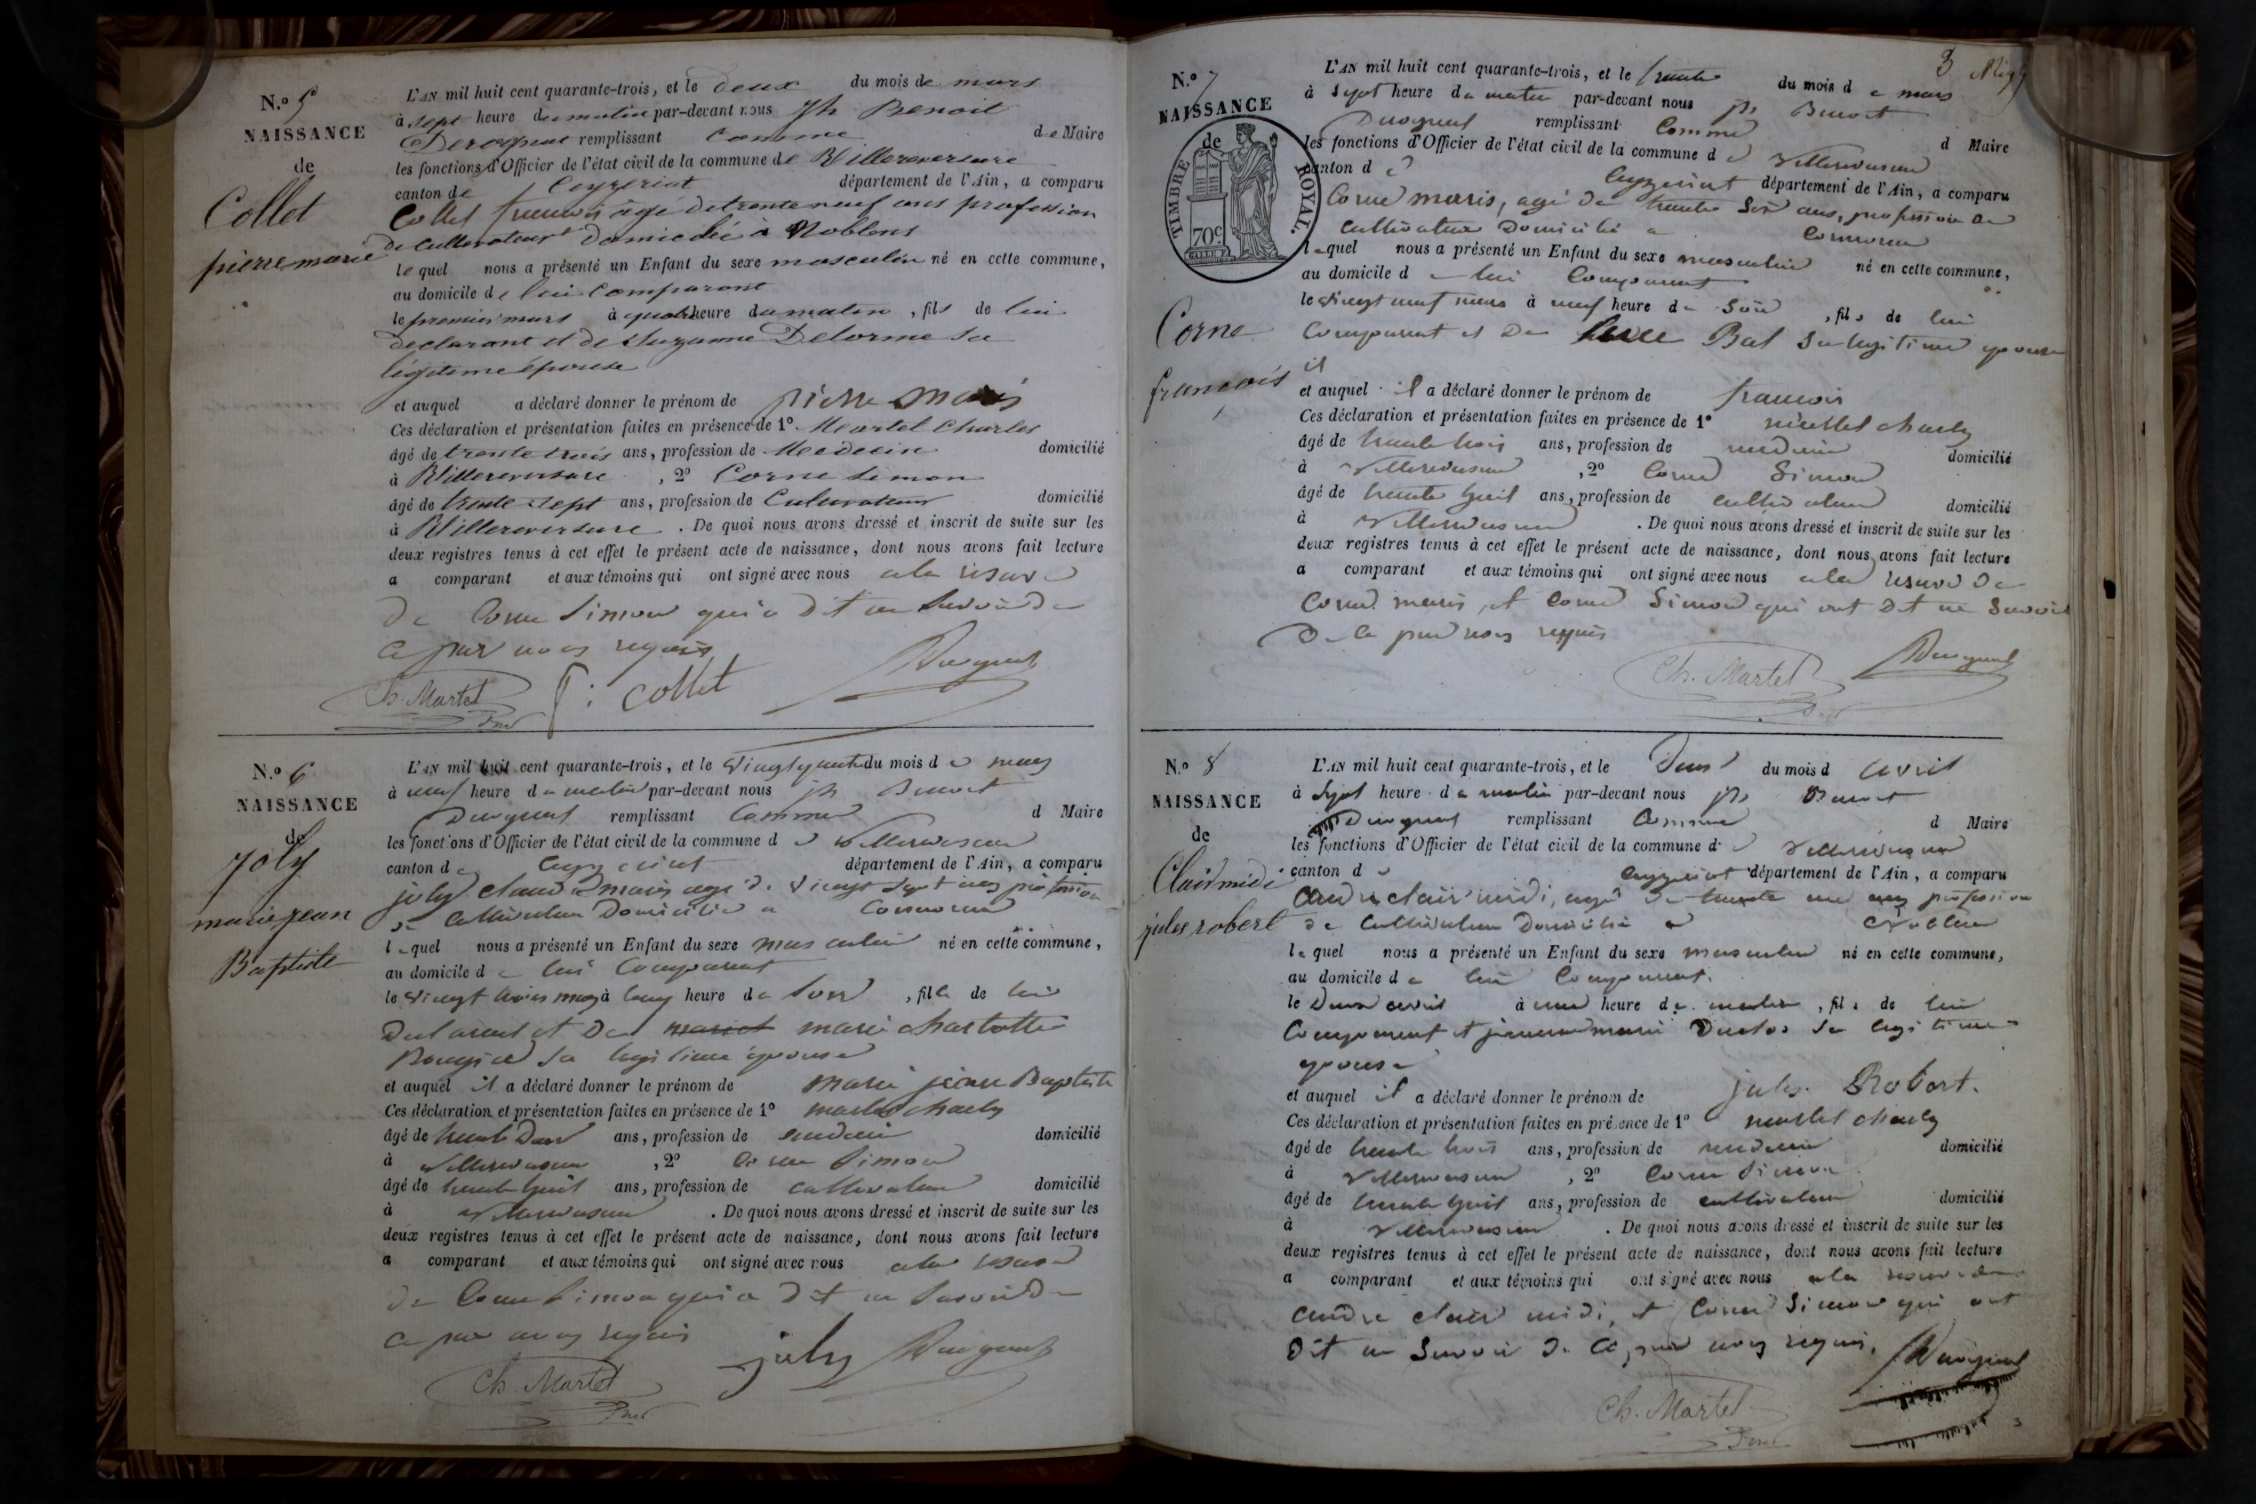 N.º 5
NAISSANCE
de
Collet
pierre marie
L'AN mil huit cent quarante-trois, et le deux du mois de mars
à sept heure du matin par-devant nous Jh Benoit
remplissant comme de Maire
les fonctions d'Officier de l'état civil de la commune de Villereversure
canton de Ceyzeriat département de l'Ain, a comparu
Collet francois âgé de trente neuf ans profession
de cultivateur domicilié à Noblens
le quel nous a présenté un Enfant du sexe masculin né en cette commune,
au domicile de lui Comparant
le premier mars à quatre heure du matin, fils de lui
declarant et de Suzanne Delorme sa
légitime épouse
et auquel a déclaré donner le prénom de pierre marie
Ces déclaration et présentation faites en présence de 1º Martel Charles
âgé de trente trois ans, profession de Medecin domicilié
à Villereversure, 2º Corne Simon
âgé de trente sept ans, profession de Cultivateur domicilié
à Villereversure. De quoi nous avons dressé et inscrit de suite sur les
deux registres tenus à cet effet le présent acte de naissance, dont nous avons fait lecture
a comparant et aux témoins qui ont signé avec nous a la reserve
de Corne Simon qui a dit ne savoir de
ce par nous requis
Ch. Martel
f: collet
N.º 6
NAISSANCE
de
joly
marie jean
Baptiste
L'AN mil huit cent quarante-trois, et le vingt quatre du mois de mars
à neuf heure du matin par-devant nous jh Benoit
remplissant Comme d Maire
les fonctions d'Officier de l'état civil de la commune de Villereversure
canton de Ceyzeriat département de l'Ain, a comparu
joly claude marie agé de vingt sept ans profession
de Cultivateur Domicilié a Cormorand
lequel nous a présenté un Enfant du sexe masculin né en cette commune,
au domicile de lui Comparant
le vingt trois mars à cinq heure du soir, fils de lui
Declarant et De marie charlotte
sa legitime épouse
et auquel il a déclaré donner le prénom de marie jean Baptiste
Ces déclaration et présentation faites en présence de 1º martel charles
âgé de trente Deux ans, profession de medecin domicilié
à Villereversure, 2º Corne Simon
âgé de trente huit ans, profession de cultivateur domicilié
à Villereversure. De quoi nous avons dressé et inscrit de suite sur les
deux registres tenus à cet effet le présent acte de naissance, dont nous avons fait lecture
a comparant et aux témoins qui ont signé avec nous a la reserve
de Corne Simon qui a dit ne savoir de
ce par nous requis
Ch. Martel
joly
3
N.º 7
NAISSANCE
de
TIMBRE ROYAL.
70c
Corne
francois
L'AN mil huit cent quarante-trois, et le trente du mois de mars
à sept heure du matin par-devant nous jh Benoit
remplissant Comme d Maire
les fonctions d'Officier de l'état civil de la commune de Villereversure
canton de Ceyzeriat département de l'Ain, a comparu
Corne marie, agé de trente six ans, profession de
cultivateur Domicilié a Cormorand
lequel nous a présenté un Enfant du sexe masculin né en cette commune,
au domicile de lui Comparant
le vingt neuf mars à neuf heure du soir, fils de lui
Comparant et De Bal sa legitime epouse
il
et auquel il a déclaré donner le prénom de francois
Ces déclaration et présentation faites en présence de 1º martel charles
âgé de trente trois ans, profession de medecin domicilié
à Villereversure, 2º Corne Simon
âgé de trente huit ans, profession de cultivateur domicilié
à Villereversure. De quoi nous avons dressé et inscrit de suite sur les
deux registres tenus à cet effet le présent acte de naissance, dont nous avons fait lecture
a comparant et aux témoins qui ont signé avec nous a la reserve de
Corne marie, et Corne Simon qui ont Dit ne Savoir
De ce par nous requis
Ch. Martel
N.º 8
NAISSANCE
de
Clair midi
jules robert
L'AN mil huit cent quarante-trois, et le Deux du mois d avril
à sept heure du matin par-devant nous jh Benoit
remplissant Comme d Maire
les fonctions d'Officier de l'état civil de la commune de Villereversure
canton de Ceyzeriat département de l'Ain, a comparu
andre clair midi, agé de trente une ans profession
de Cultivateur Domicilié a Noblens
lequel nous a présenté un Enfant du sexe masculin né en cette commune,
au domicile de lui Comparant.
le Deux avril à une heure du matin, fils de lui
Comparant et jeanne marie Duclos sa legitime
epouse
et auquel il a déclaré donner le prénom de jules Robert.
Ces déclaration et présentation faites en présence de 1º martel charles
âgé de trente trois ans, profession de medecin domicilié
à Villereversure, 2º Corne Simon
âgé de trente huit ans, profession de cultivateur domicilié
à Villereversure. De quoi nous avons dressé et inscrit de suite sur les
deux registres tenus à cet effet le présent acte de naissance, dont nous avons fait lecture
a comparant et aux témoins qui ont signé avec nous a la reserve de
andre clair midi, et Corne Simon qui ont
Dit ne Savoir De ce par nous requis,
Ch. Martel
3